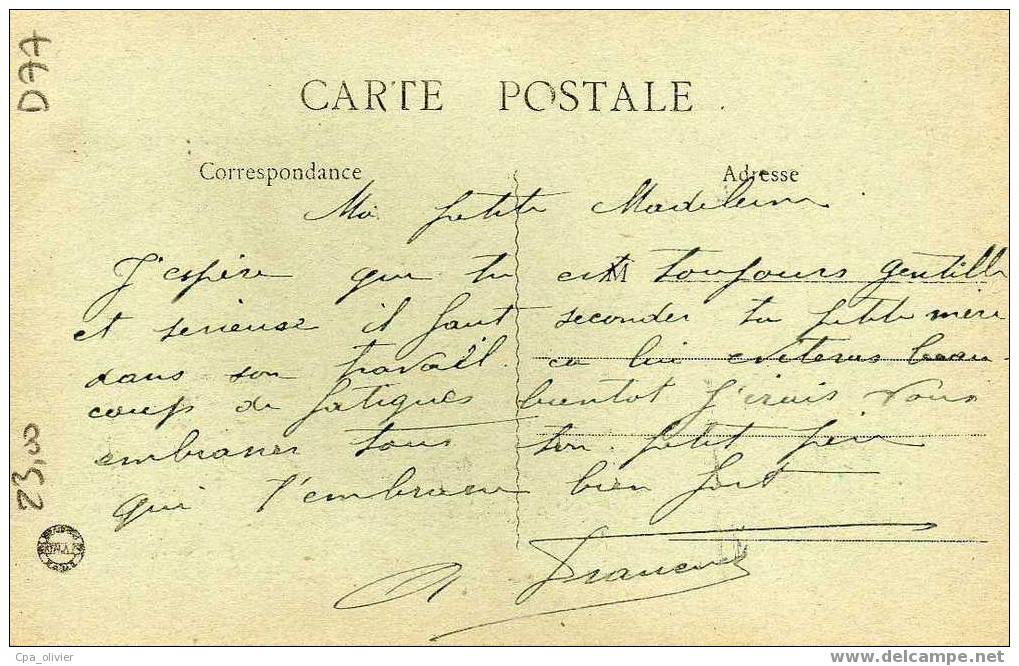 D77
CARTE POSTALE
Correspondance
Adresse
Ma petite Madeleine
J'espère que tu est toujours gentille
M
et serieuse il faut seconder ta petite mère
dans son travail ca lui eviteras beau-
coup de fatigues bientot J'irais vous
embrasser tous ton petit père
qui t'embrasse bien fort
23,00
A
Cpa_olivier
www.delcampe.net